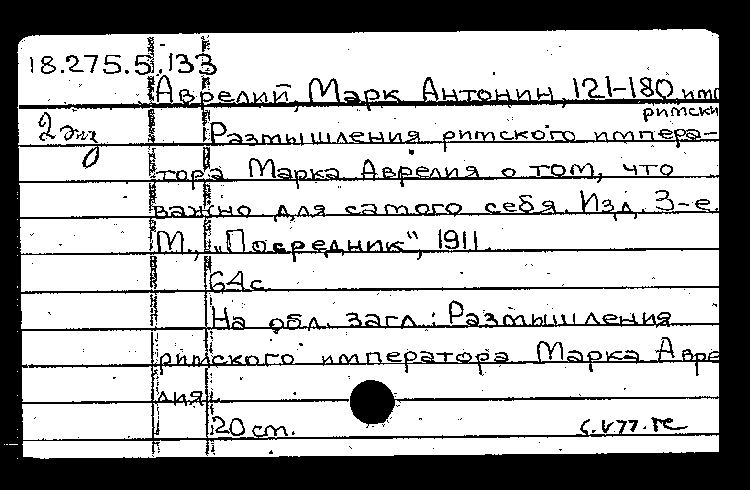 18.275.5.133
Аврелий, Марк Антонин, 121-180 имп
римски
2 экз Размышления римского импера-
тора Марка Аврелия о том, что
важно для самого себя. Изд. 3-е.
М., „Посредник", 1911.
64с.
На обл. загл.: Размышления
римского императора Марка Авре
лия.
20 ст.